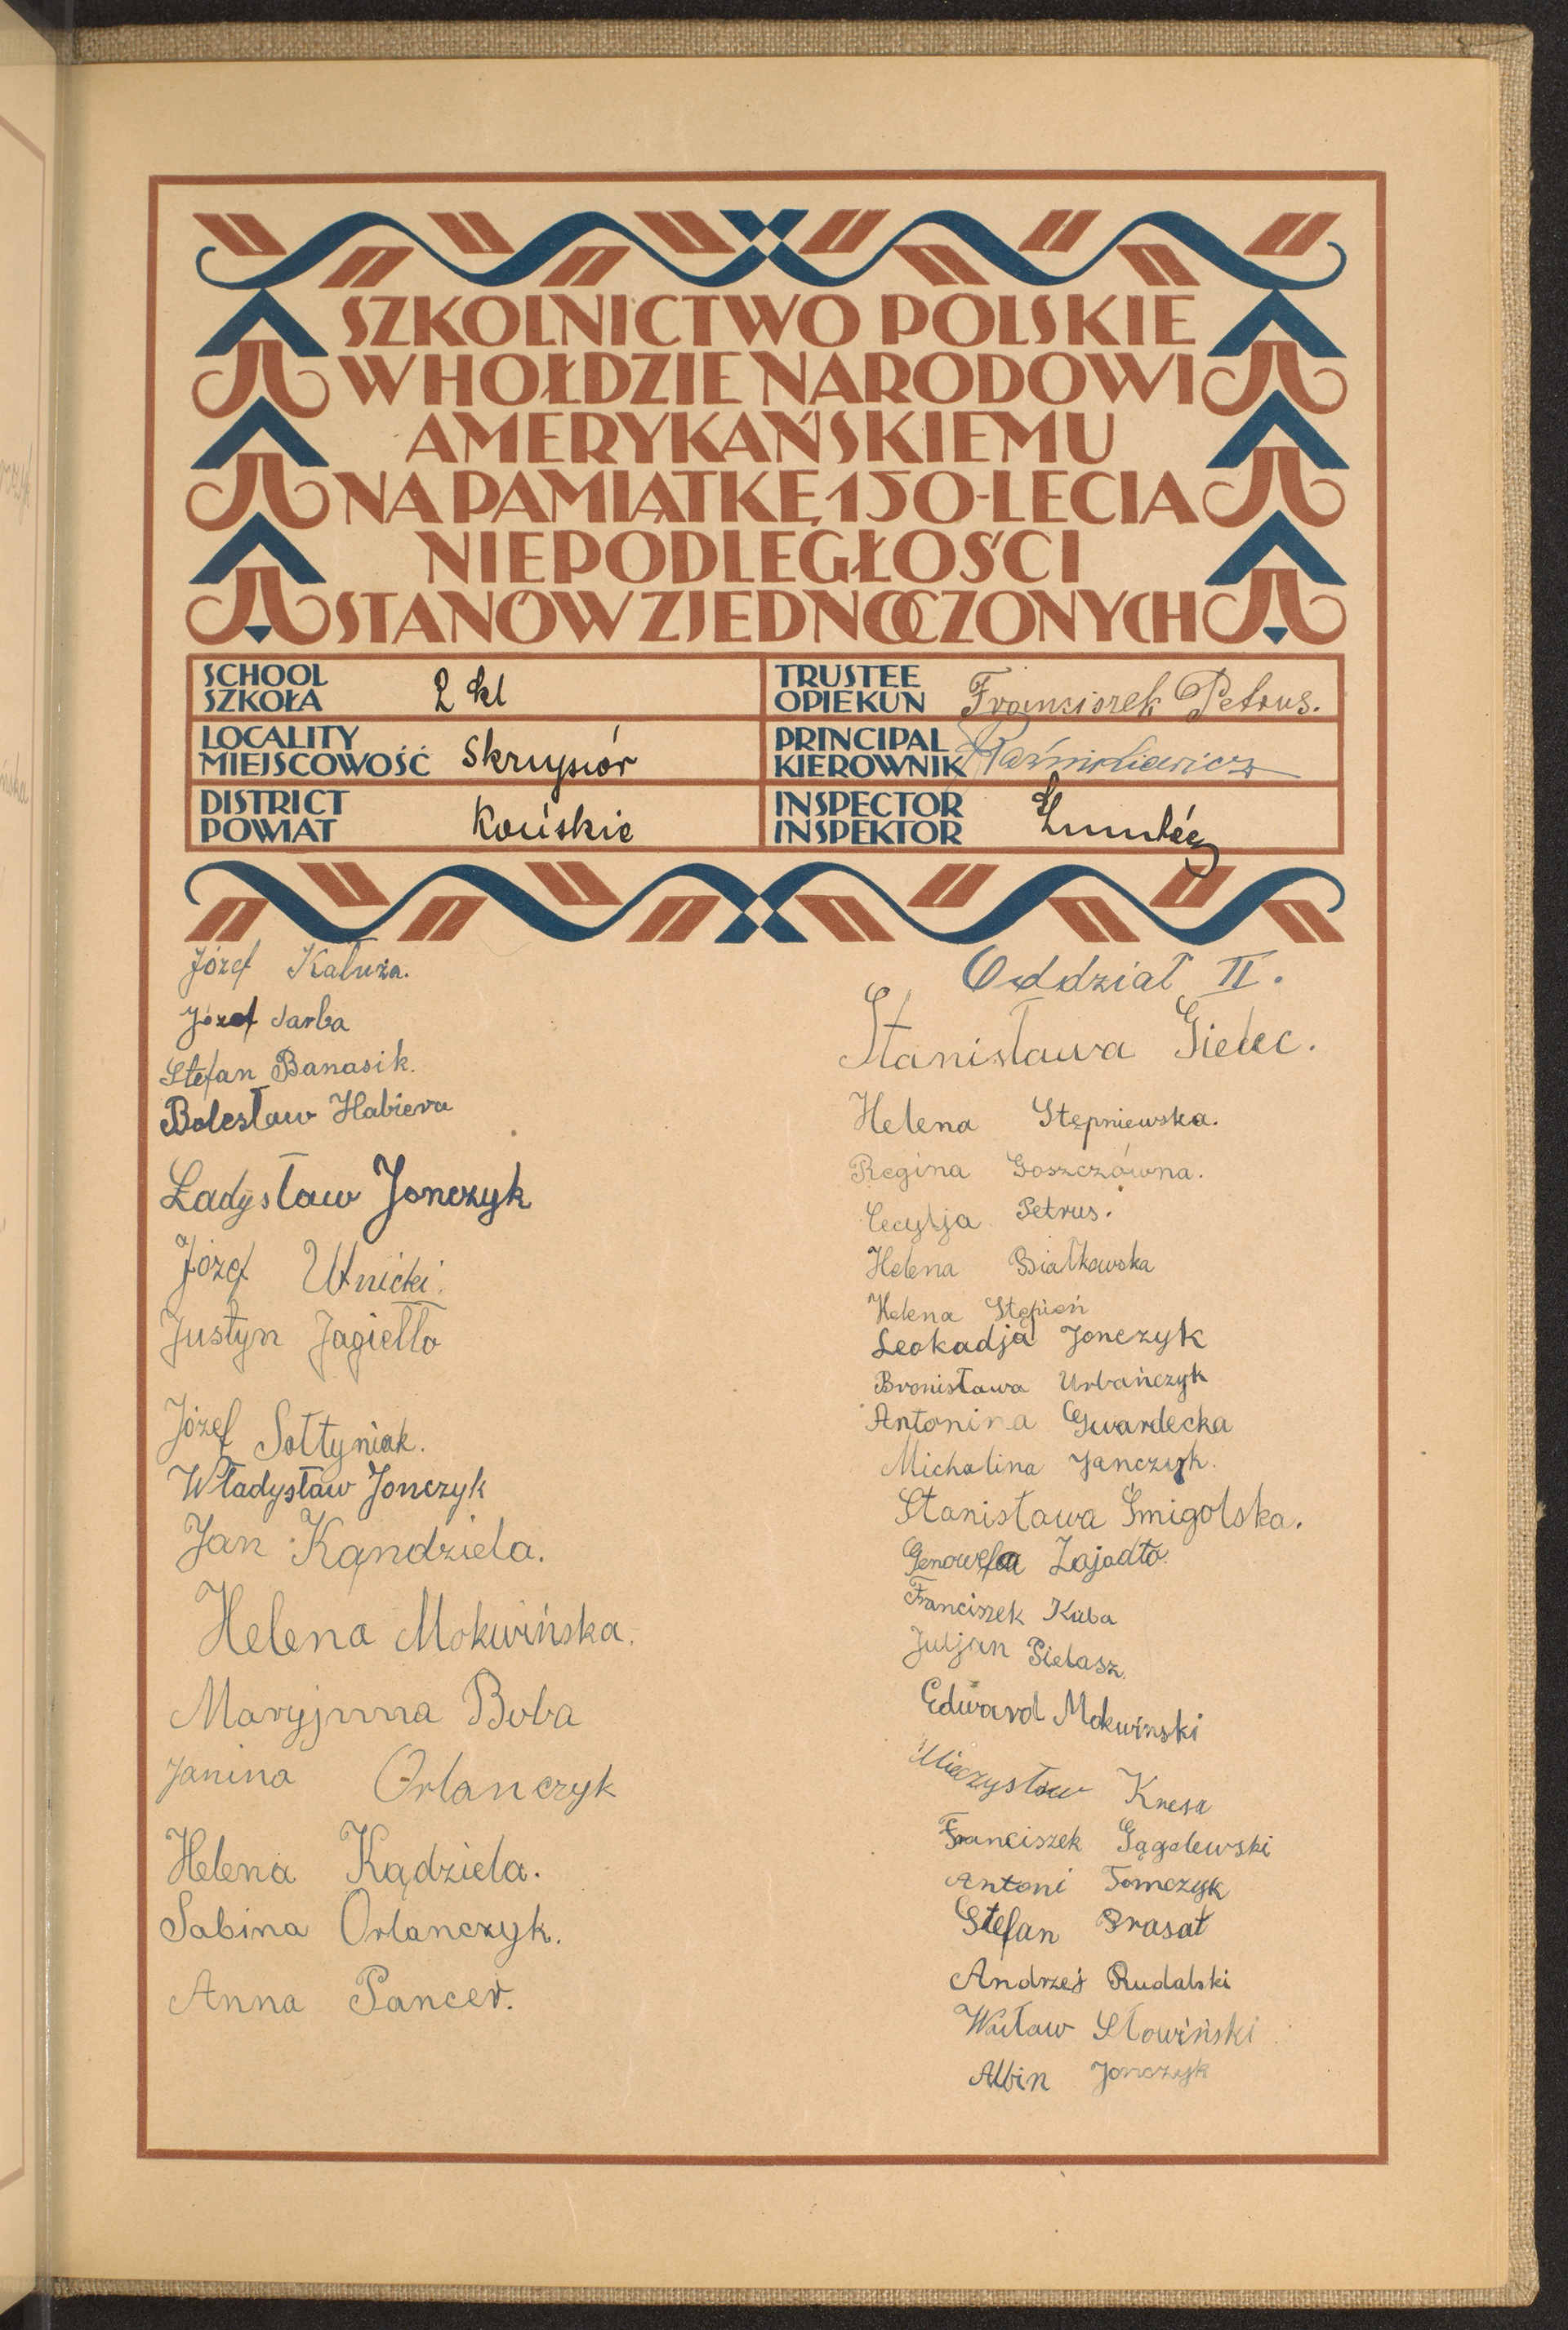 SZKOLNICTWO POLSKIE
W HOŁDZIE NARODOWI
AMERYKAŃSKIEMU
NA PAMIĄTKĘ 150-LECIA
NIEPODLEGŁOŚCI
STANÓW ZJEDNOCZONYCH
SCHOOL
SZKOŁA 2 kl
TRUSTEE
OPIEKUN Franciszek Petrus.
LOCALITY
MIEJSCOWOŚĆ Skrzypiór
PRINCIPAL
KIEROWNIK
DISTRICT
POWIAT Końskie
INSPECTOR
INSPEKTOR
Józef Kałuża.
Józef Sarba
Stefan Banasik.
Bolesław Habiera
Ładysław Jonczyk
Józef Utnicki.
Justyn Jagiełło
Józef Sołtyniak.
Władysław Jonczyk
Jan Kąndziela.
Helena Mokwińska.
Maryjnna Boba
Janina Orlanczyk
Helena Kądziela.
Sabina Orlanczyk.
Anna Pancer.
Oddział II.
Stanisława Gielec.
Helena Stępniewska.
Regina Goszczówna.
Cecylja Petrus.
Helena Białkowska
Helena Stępień
Leokadja Jonczyk
Bronisława Urbańczyk
Antonina Gwardecka
Michalina Janczyk.
Stanisława Śmigolska.
Genowefa Zajadło.
Franciszek Kuba
Juljan Pielasz.
Edward Mokwinski
Mieczysław Kresa
Franciszek Gągolewski
Antoni Tomczyk
Stefan Prasał
Andrzej Rudalski
Wacław Słowiński
Albin Jonczyk